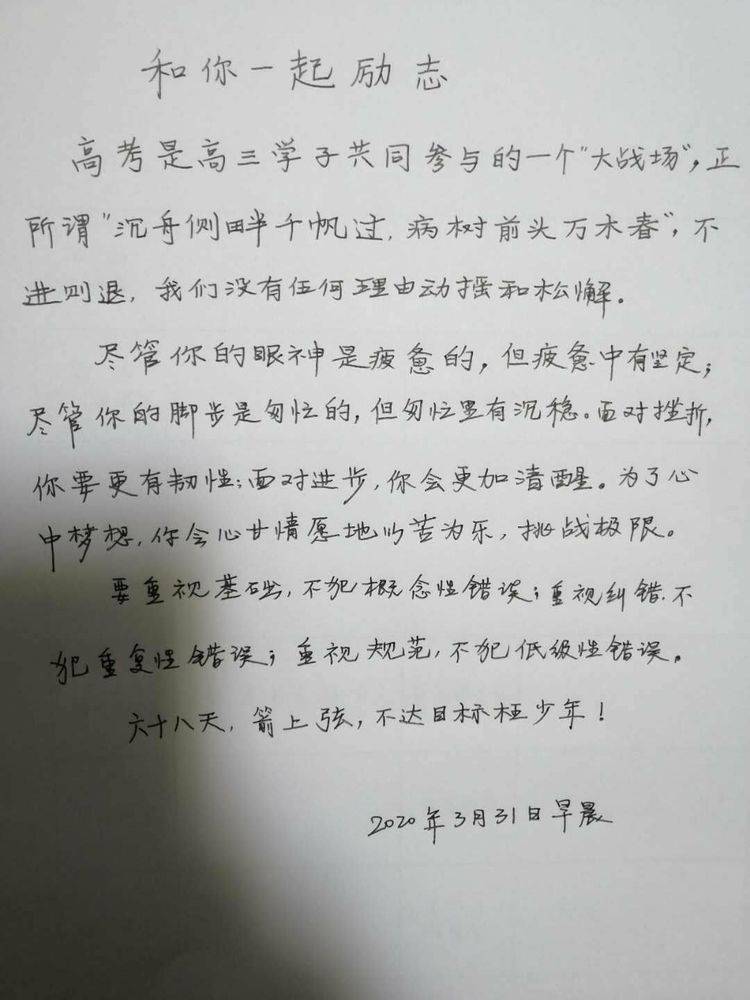 和你一起励志
高考是高三学子共同参与的一个"大战场",正
所谓"沉舟侧畔千帆过,病树前头万木春",不
进则退,我们没有任何理由动摇和松懈。
尽管你的眼神是疲惫的,但疲惫中有坚定;
尽管你的脚步是匆忙的,但匆忙里有沉稳。面对挫折,
你要更有韧性;面对进步,你会更加清醒。为了心
中梦想,你会心甘情愿地以苦为乐,挑战极限。
要重视基础,不犯概念性错误;重视纠错,不
犯重复性错误;重视规范,不犯低级性错误。
六十八天,箭上弦,不达目标枉少年!
2020年3月31日早晨